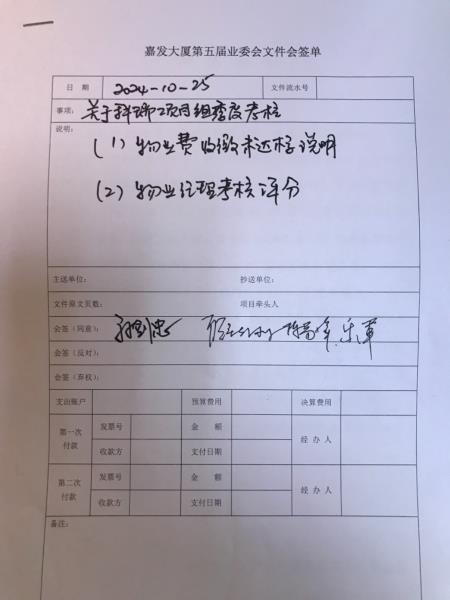 嘉发大厦第五届业委会文件会签单
日 期 2024-10-25 文件流水号
事项: 关于科瑞项目组季度考核
说明:
(1) 物业费收缴未达标说明
(2) 物业经理考核评分
主送单位: 抄送单位:
文件原文页数: 项目牵头人
会签(同意):
会签(反对):
会签(弃权):
支出账户 预算费用 决算费用
第一次付款 发票号 金 额 经 办 人
收款方 支付日期
第二次付款 发票号 金 额 经 办 人
收款方 支付日期
备注: